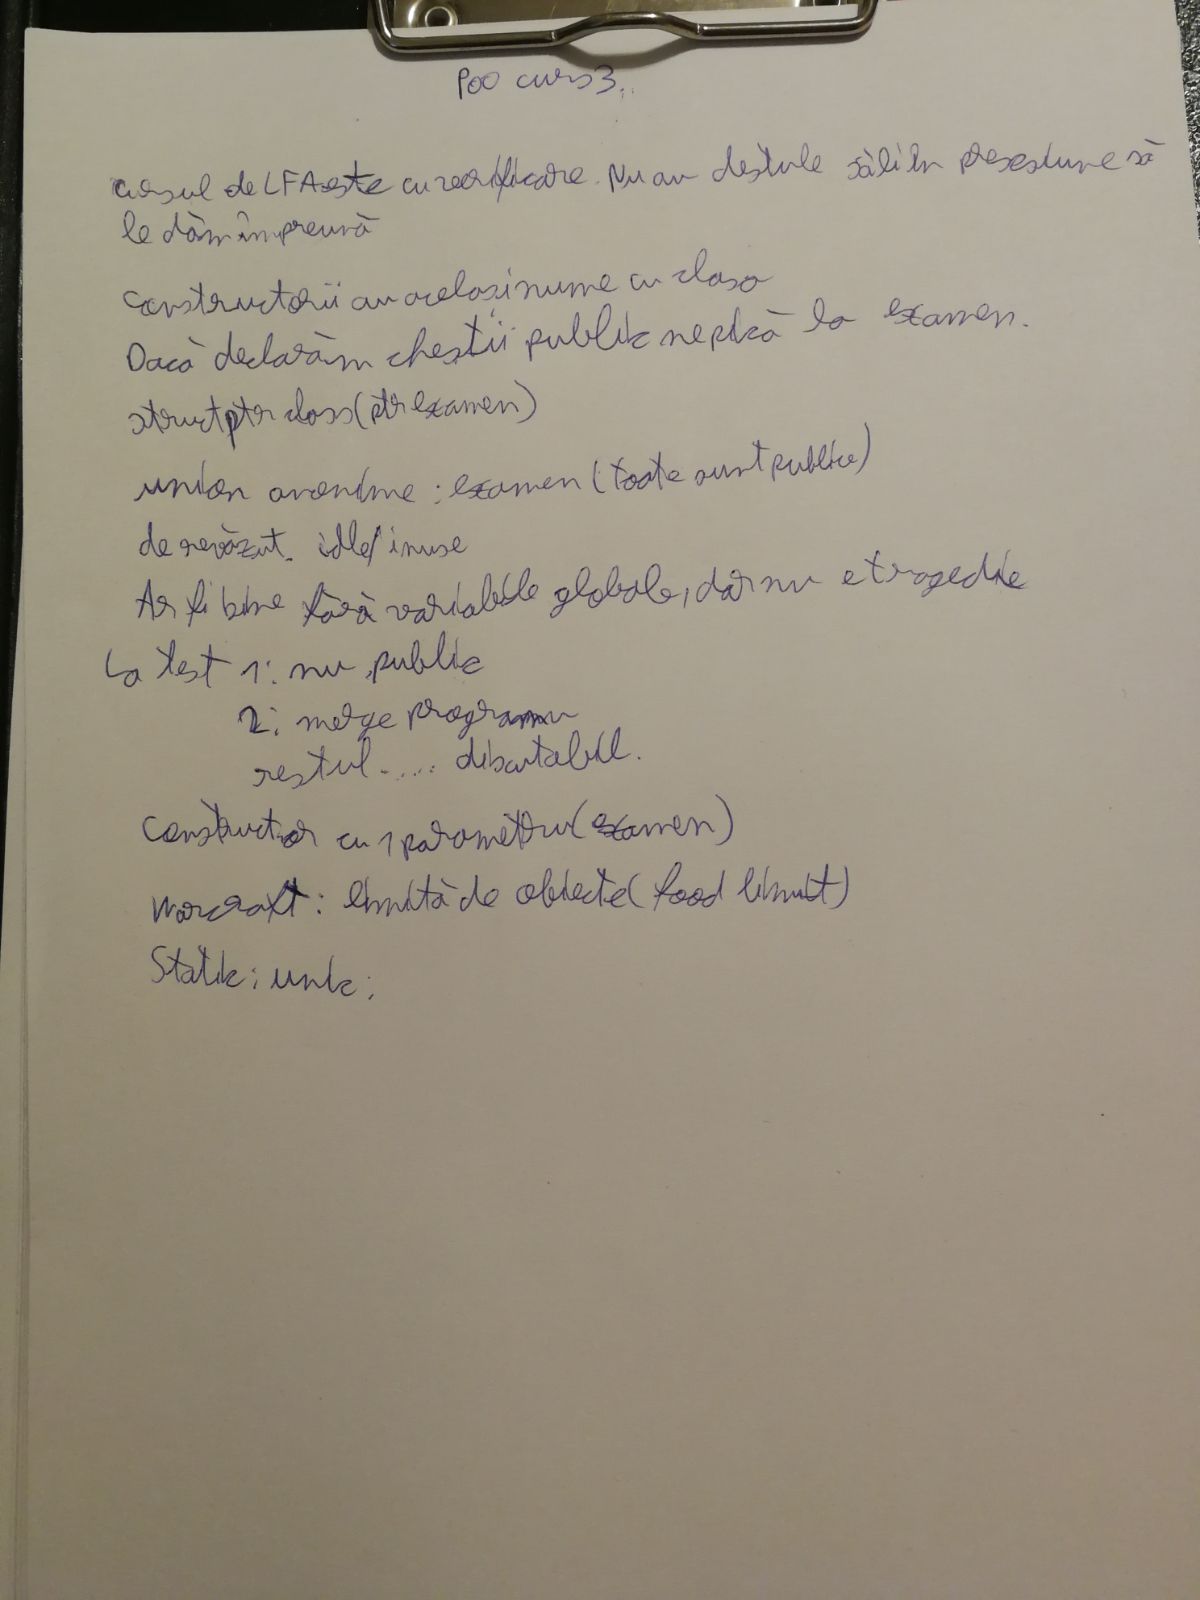 POO curs 3..
cursul de LFA este cu verificare. Nu au destule săli în presesiune să
le dăm împreună
Constructorii au acelasi nume cu clasa
Dacă declarăm chestii public ne pică la examen.
struct ptr class (ptr examen)
union anonime : examen (toate sunt publice)
de revăzut. idle/inuse
Ar fi bine fără variabile globale, dar nu e tragedie
La test 1: nu public
2: merge programu
restul .... discutabil.
Constructor cu 1 parametru (examen)
Warcraft : limită de obiecte (food limit)
Static : unic ;